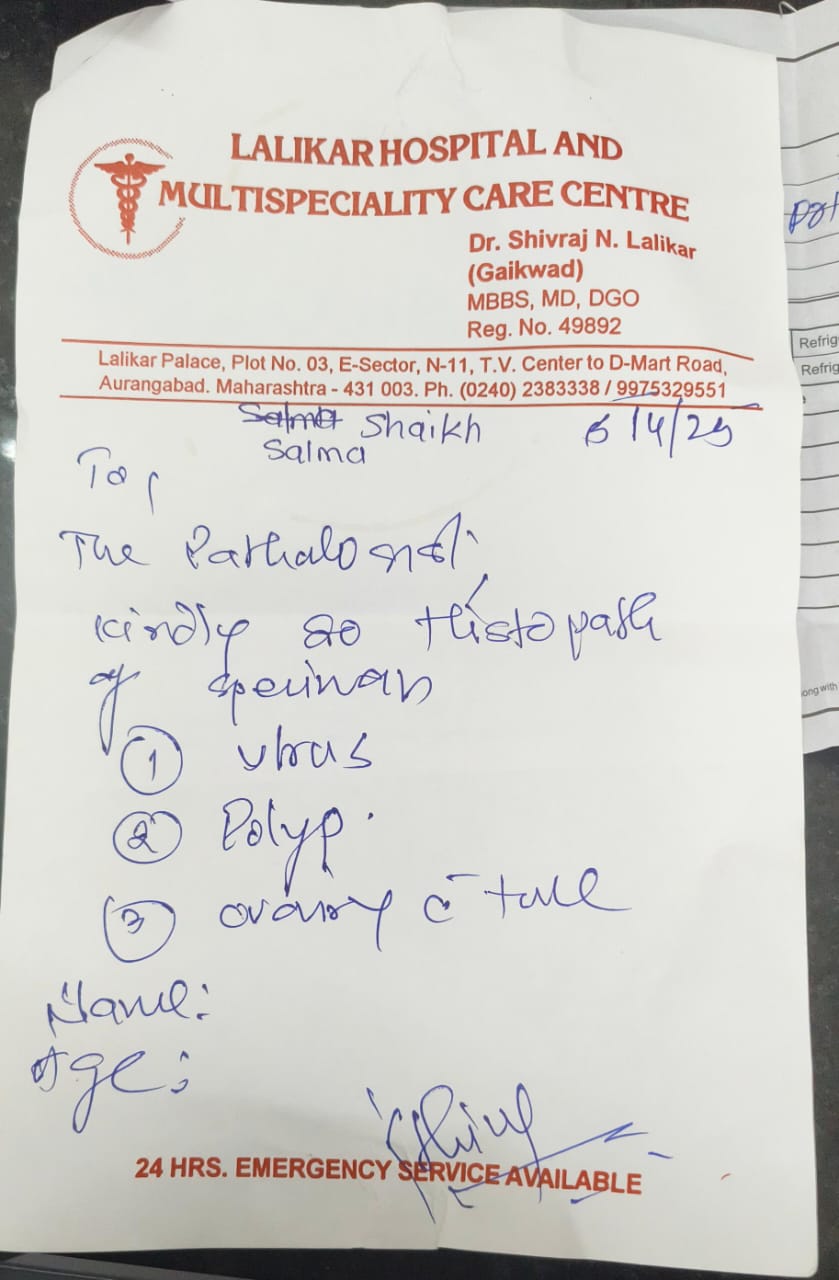 LALIKAR HOSPITAL AND
MULTISPECIALITY CARE CENTRE
Dr. Shivraj N. Lalikar
(Gaikwad)
MBBS, MD, DGO
Reg. No. 49892
Lalikar Palace, Plot No. 03, E-Sector, N-11, T.V. Center to D-Mart Road,
Aurangabad. Maharashtra - 431 003. Ph. (0240) 2383338 / 9975329551
Salma Shaikh 6/4/25
Salma
To,
The
Kindly do Histopath
of
1
2 Polyp.
3 ovary c̄
Name:
Age:
24 HRS. EMERGENCY SERVICE AVAILABLE
Refrig
Refrig
ong with